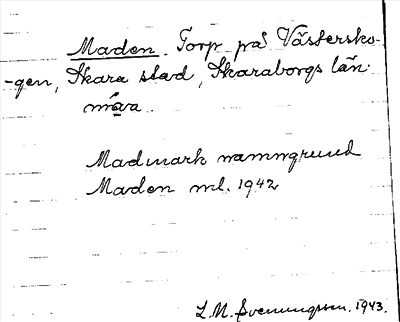 Maden. Torp på Västersko-
-gen, Skara stad, Skaraborgs län.
Madmark namngrund
Maden ml. 1942
L.M. Svenungsson. 1943.